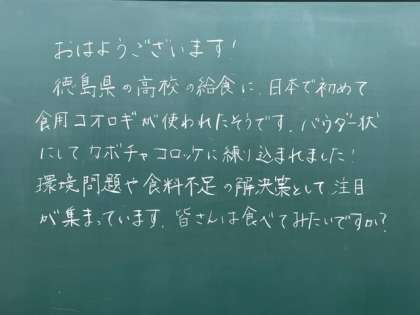 おはようございます!
徳島県の高校の給食に、日本で初めて
食用コオロギが使われたそうです。パウダー状
にしてカボチャコロッケに練り込まれました!
環境問題や食料不足の解決策として注目
が集まっています。皆さんは食べてみたいですか?